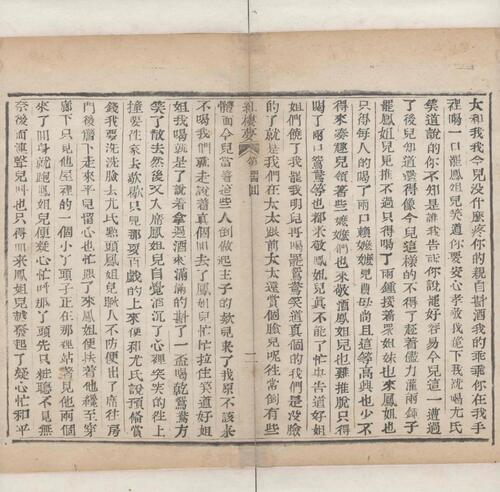 太和我我今兒没什麽疼你的親自斟酒我的乖乖你在我手
裡喝一口罷鳳姐兒笑道你要安心孝敬我跪下我就喝尤氏
笑道說的你不知是誰我告訴你說罷好容易今兒這一遭過
了後兒知道還得像今兒這樣的不得了趁着儘力灌兩鍾子
罷鳳姐兒見推不過只得喝了兩鍾接着衆姐妹也來鳳姐也
只得每人的喝了兩口賴嬷嬷見賈母尚且這等高興也少不
得來凑趣兒領著些嬷嬷們也來敬酒鳳姐兒也難推脫只得
喝了兩口鴛鴦等也都來敬鳳姐兒真不能了忙央告道好
姐們饒了我罷我明兒再喝罷鴛鴦笑道真個的我們是没臉
的了就是我們在太太跟前太太還賞個臉兒呢往常倒有些
紅樓夢 第 回
體面今兒當著這些人倒做起主子的欵兒來了我原不該來
不喝我們就走說着真個回去了鳳姐兒忙忙拉住笑道好姐
姐我喝就是了說着拿過酒來滿滿的斟了一盃喝乾鴛鴦方
笑了散去然後又入席鳳姐兒自覺酒沉了心裡突突的往上
撞要往家去歇歇只見那耍百戲的上來便和尤氏說預備賞
錢我要洗洗臉去尤氏點頭鳳姐兒瞅人不防便出了席往房
門後簷下走來平兒留心也忙跟了來鳳姐便扶着他纔至穿
廊下只見他屋裡的一個小丫頭子正在那裡站著見他兩個
來了回身就跑鳳姐兒便疑心忙呌那丫頭先只粧聽不見無
奈後面連聲兒呌也只得回來鳳姐兒越發起了疑心忙和平